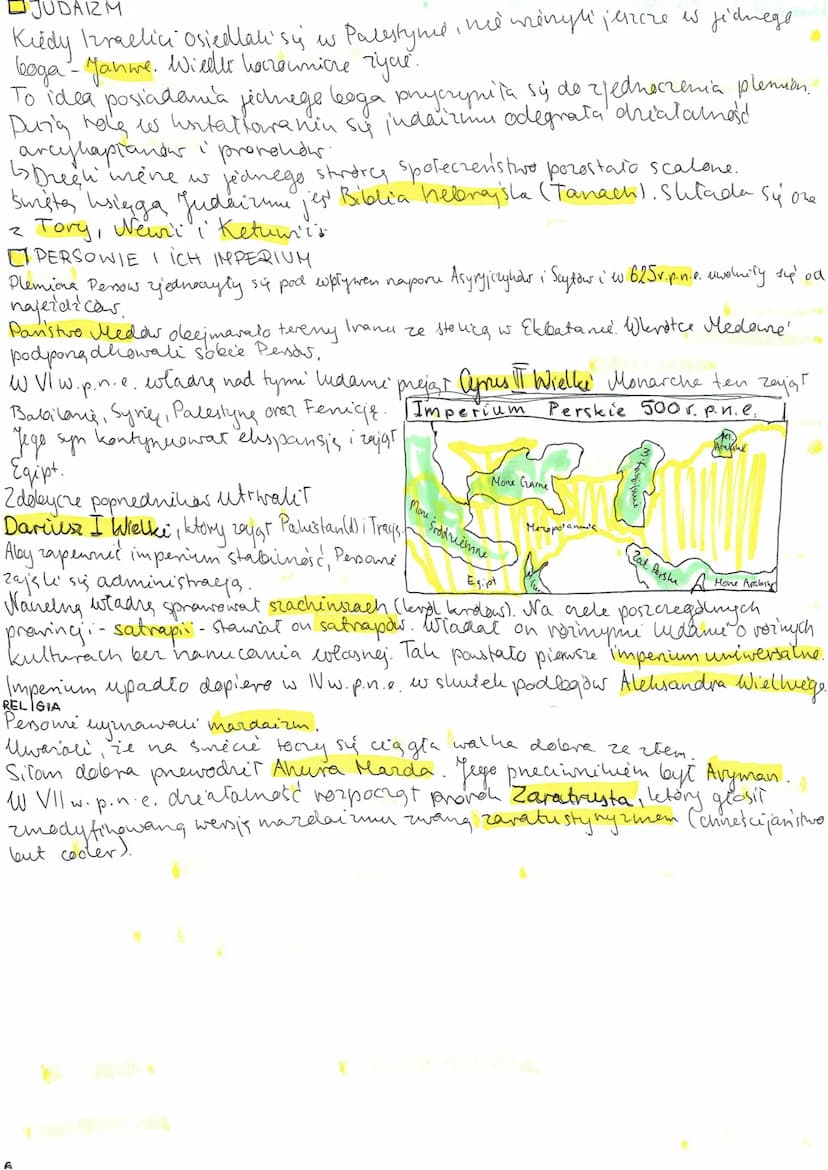 JUDAIZM
Kiedy Izraelici osiedlali się w Palestynie, nie wierzyli jeszcze w jednego
boga - Jahwe. Wiedli koczownicze życie.
To idea posiadania jednego boga przyczyniła się do zjednoczenia plemion.
Dużą rolę w kształtowaniu się judaizmu odegrała działalność
arcykapłanów i proroków.
↳ Dzięki wierze w jednego stwórcę społeczeństwo pozostało scalone.
Świętą księgą Judaizmu jest Biblia hebrajska (Tanach). Składa się ona
z Tory, Newii i Ketuwii.
PERSOWIE I ICH IMPERIUM
Plemiona Persów zjednoczyły się pod wpływem naporu Asyryjczyków i Scytów i w 625r.p.n.e. uwolniły się od
najeźdźców.
Państwo Medów obejmowało tereny Iranu ze stolicą w Ekbatanie. Wkrótce Medowie
podporządkowali sobie Persów.
W VI w.p.n.e. władzę nad tymi ludami przejął Cyrus II Wielki. Monarcha ten zajął
Babilonię, Syrię, Palestynę oraz Fenicję.
Jego syn kontynuował ekspansję i zajął
Egipt.
Zdobycze poprzedników utrwalił
Dariusz I Wielki, który zajął Pakistan(!) i Trację.
Aby zapewnić imperium stabilność, Persowie
zajęli się administracją.
Imperium Perskie 500 r. p.n.e.
Morze Czarne
M. Kaspijskie
Jez. Aralskie
Morze Śródziemne
Mezopotamia
Egipt
Zat. Perska
Morze Arabskie
Naczelną władzę sprawował szachinszach (król królów). Na czele poszczególnych
prowincji - satrapii - stawiał on satrapów. Władał on różnymi ludami o różnych
kulturach bez narzucania własnej. Tak powstało pierwsze imperium uniwersalne.
Imperium upadło dopiero w IV w.p.n.e. w skutek podbojów Aleksandra Wielkiego.
RELIGIA
Persowie wyznawali mazdaizm.
Uważali, że na świecie toczy się ciągła walka dobra ze złem.
Siłom dobra przewodził Ahura Mazda. Jego przeciwnikiem był Aryman.
W VII w. p.n.e. działalność rozpoczął prorok Zaratrusta, który głosił
zmodyfikowaną wersję mazdaizmu zwaną zaratustryzmem (chrześcijaństwo
but cooler).